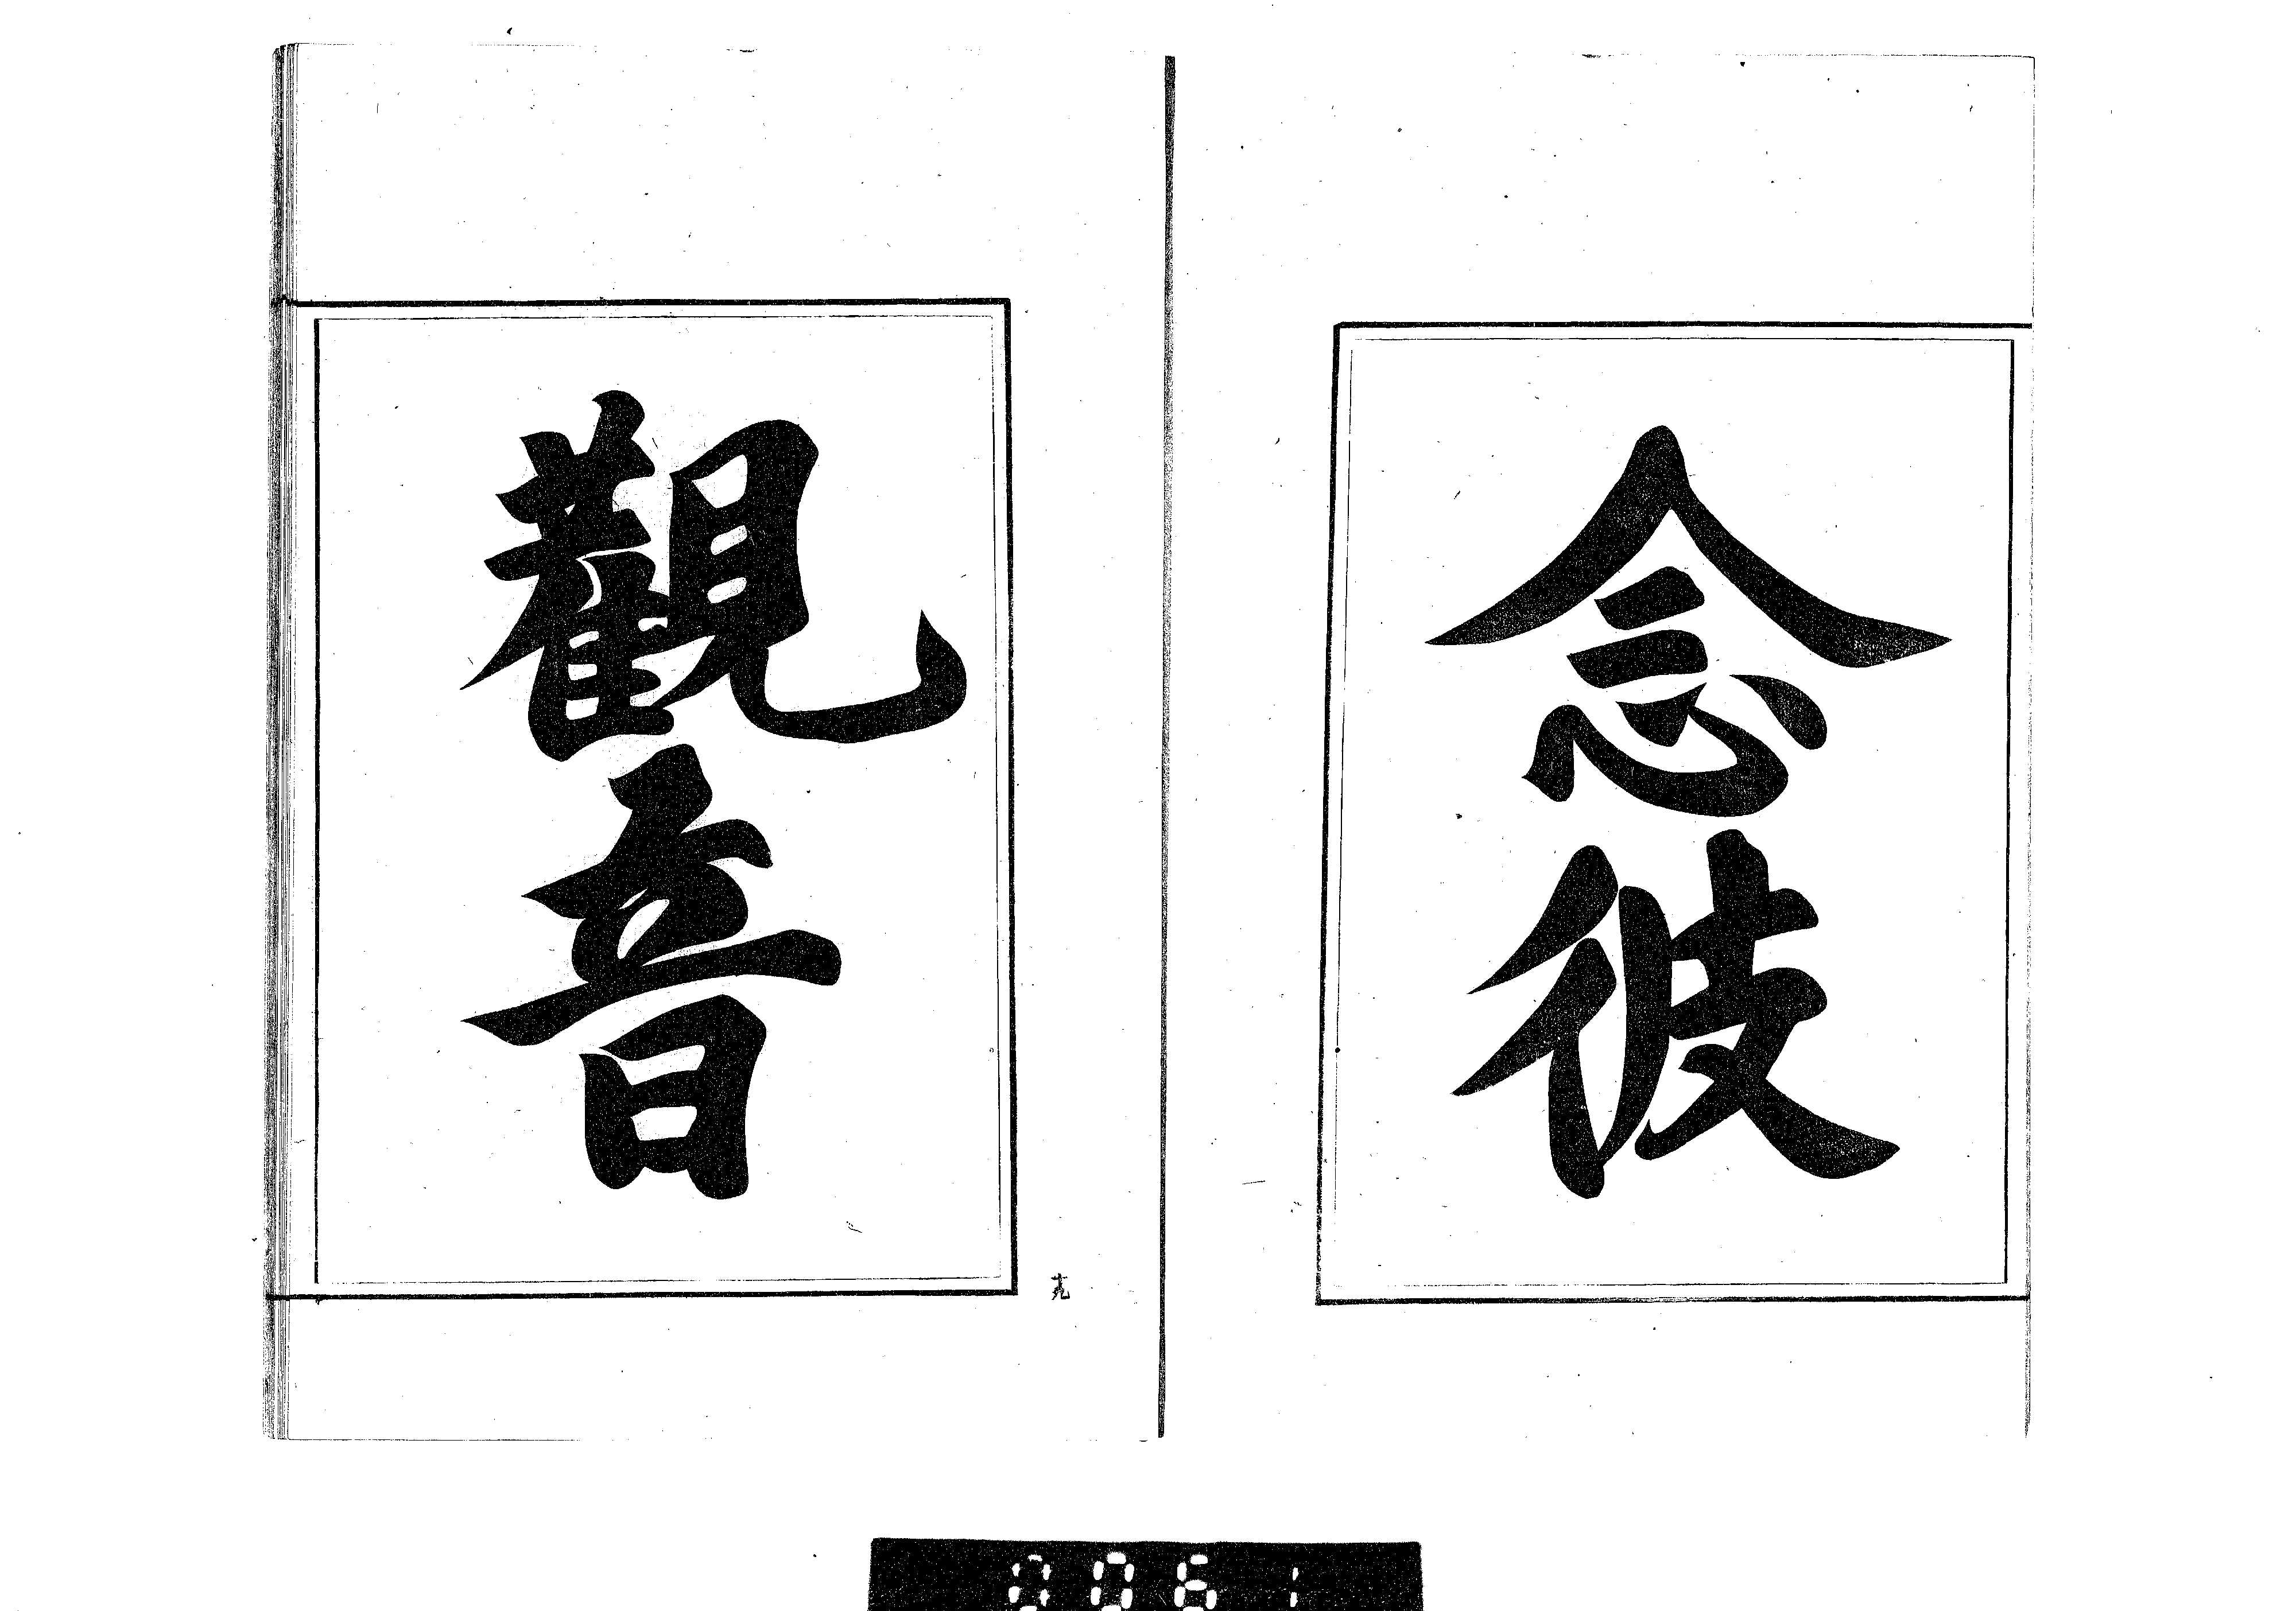 念彼
觀音
0061